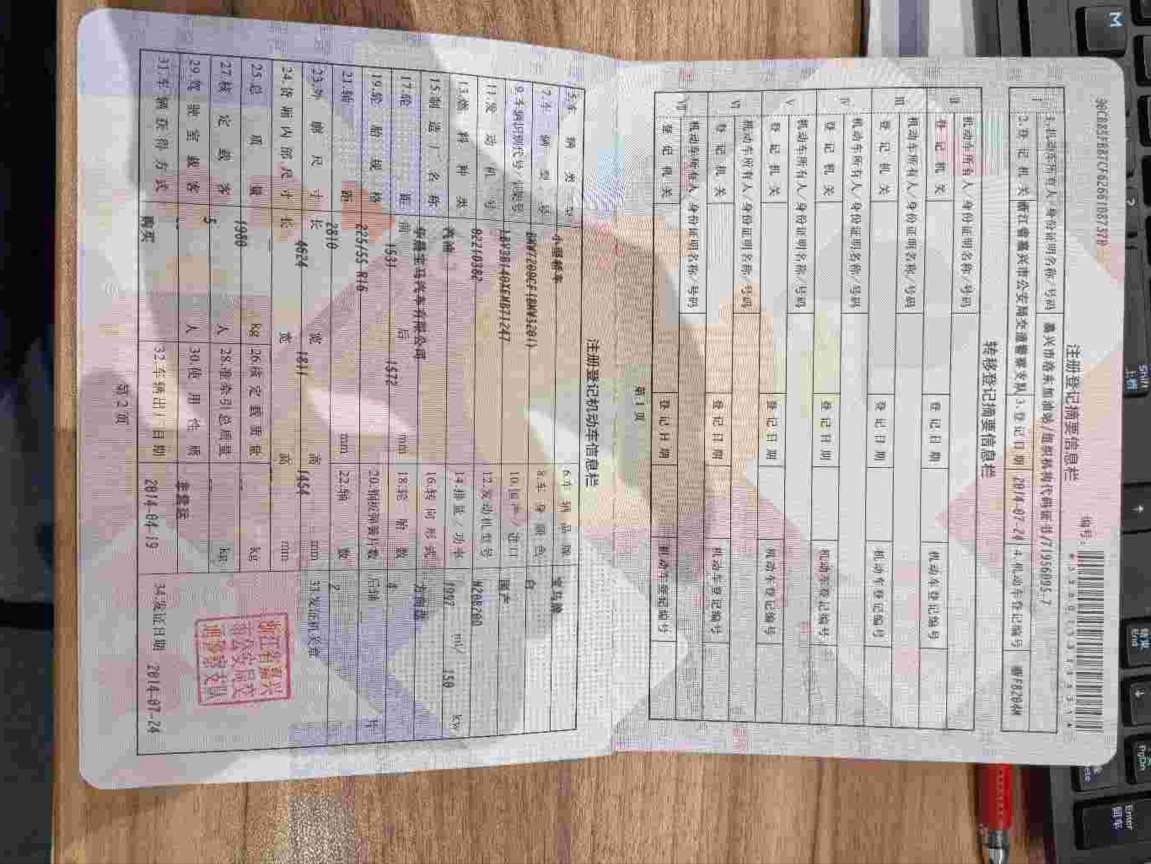 注册登记摘要信息栏
编号:
Ⅰ
1.机动车所有人/身份证明名称/号码
加油站/组织机构代码证书/71956095-7
2.登记机关 浙江省嘉兴市公安局交通警察支队 3.登记日期 2014-07-24 4.机动车登记编号 浙FB204M
转移登记摘要信息栏
Ⅱ
机动车所有人/身份证明名称/号码
登记机关 登记日期 机动车登记编号
Ⅲ
机动车所有人/身份证明名称/号码
登记机关 登记日期 机动车登记编号
Ⅳ
机动车所有人/身份证明名称/号码
登记机关 登记日期 机动车登记编号
Ⅴ
机动车所有人/身份证明名称/号码
登记机关 登记日期 机动车登记编号
Ⅵ
机动车所有人/身份证明名称/号码
登记机关 登记日期 机动车登记编号
Ⅶ
机动车所有人/身份证明名称/号码
登记机关 登记日期 机动车登记编号
第1页
注册登记机动车信息栏
5.车辆类型 小型轿车 6.车辆品牌 宝马牌
7.车辆型号 8.车身颜色 白
9.车辆识别代号/车架号 10.国产/进口 国产
11.发动机号 0221D382 12.发动机型号 N20B20D
13.燃料种类 汽油 14.排量/功率 1997 ml/ 150 kw
15.制造厂名称 华晨宝马汽车有限公司 16.转向形式 方向盘
17.轮距 前 1531 后 1572 mm 18.轮胎数 4
19.轮胎规格 225/55 R16 20.钢板弹簧片数 后轴 片
21.轴距 2810 mm 22.轴数 2
23.外廓尺寸 长 4624 宽 1811 高 1454 mm 33.发证机关章
24.货厢内部尺寸 长 宽 高 mm
25.总质量 1980 kg 26.核定载质量 kg
27.核定载客 5 人 28.准牵引总质量 kg
29.驾驶室载客 人 30.使用性质 非营运
31.车辆获得方式 购买 32.车辆出厂日期 2014-04-19 34.发证日期 2014-07-24
浙江省嘉兴
市公安局交
通警察支队
第2页
M
?
Shift
上档
↑
结束
End
↓
PgDn
Enter
回车